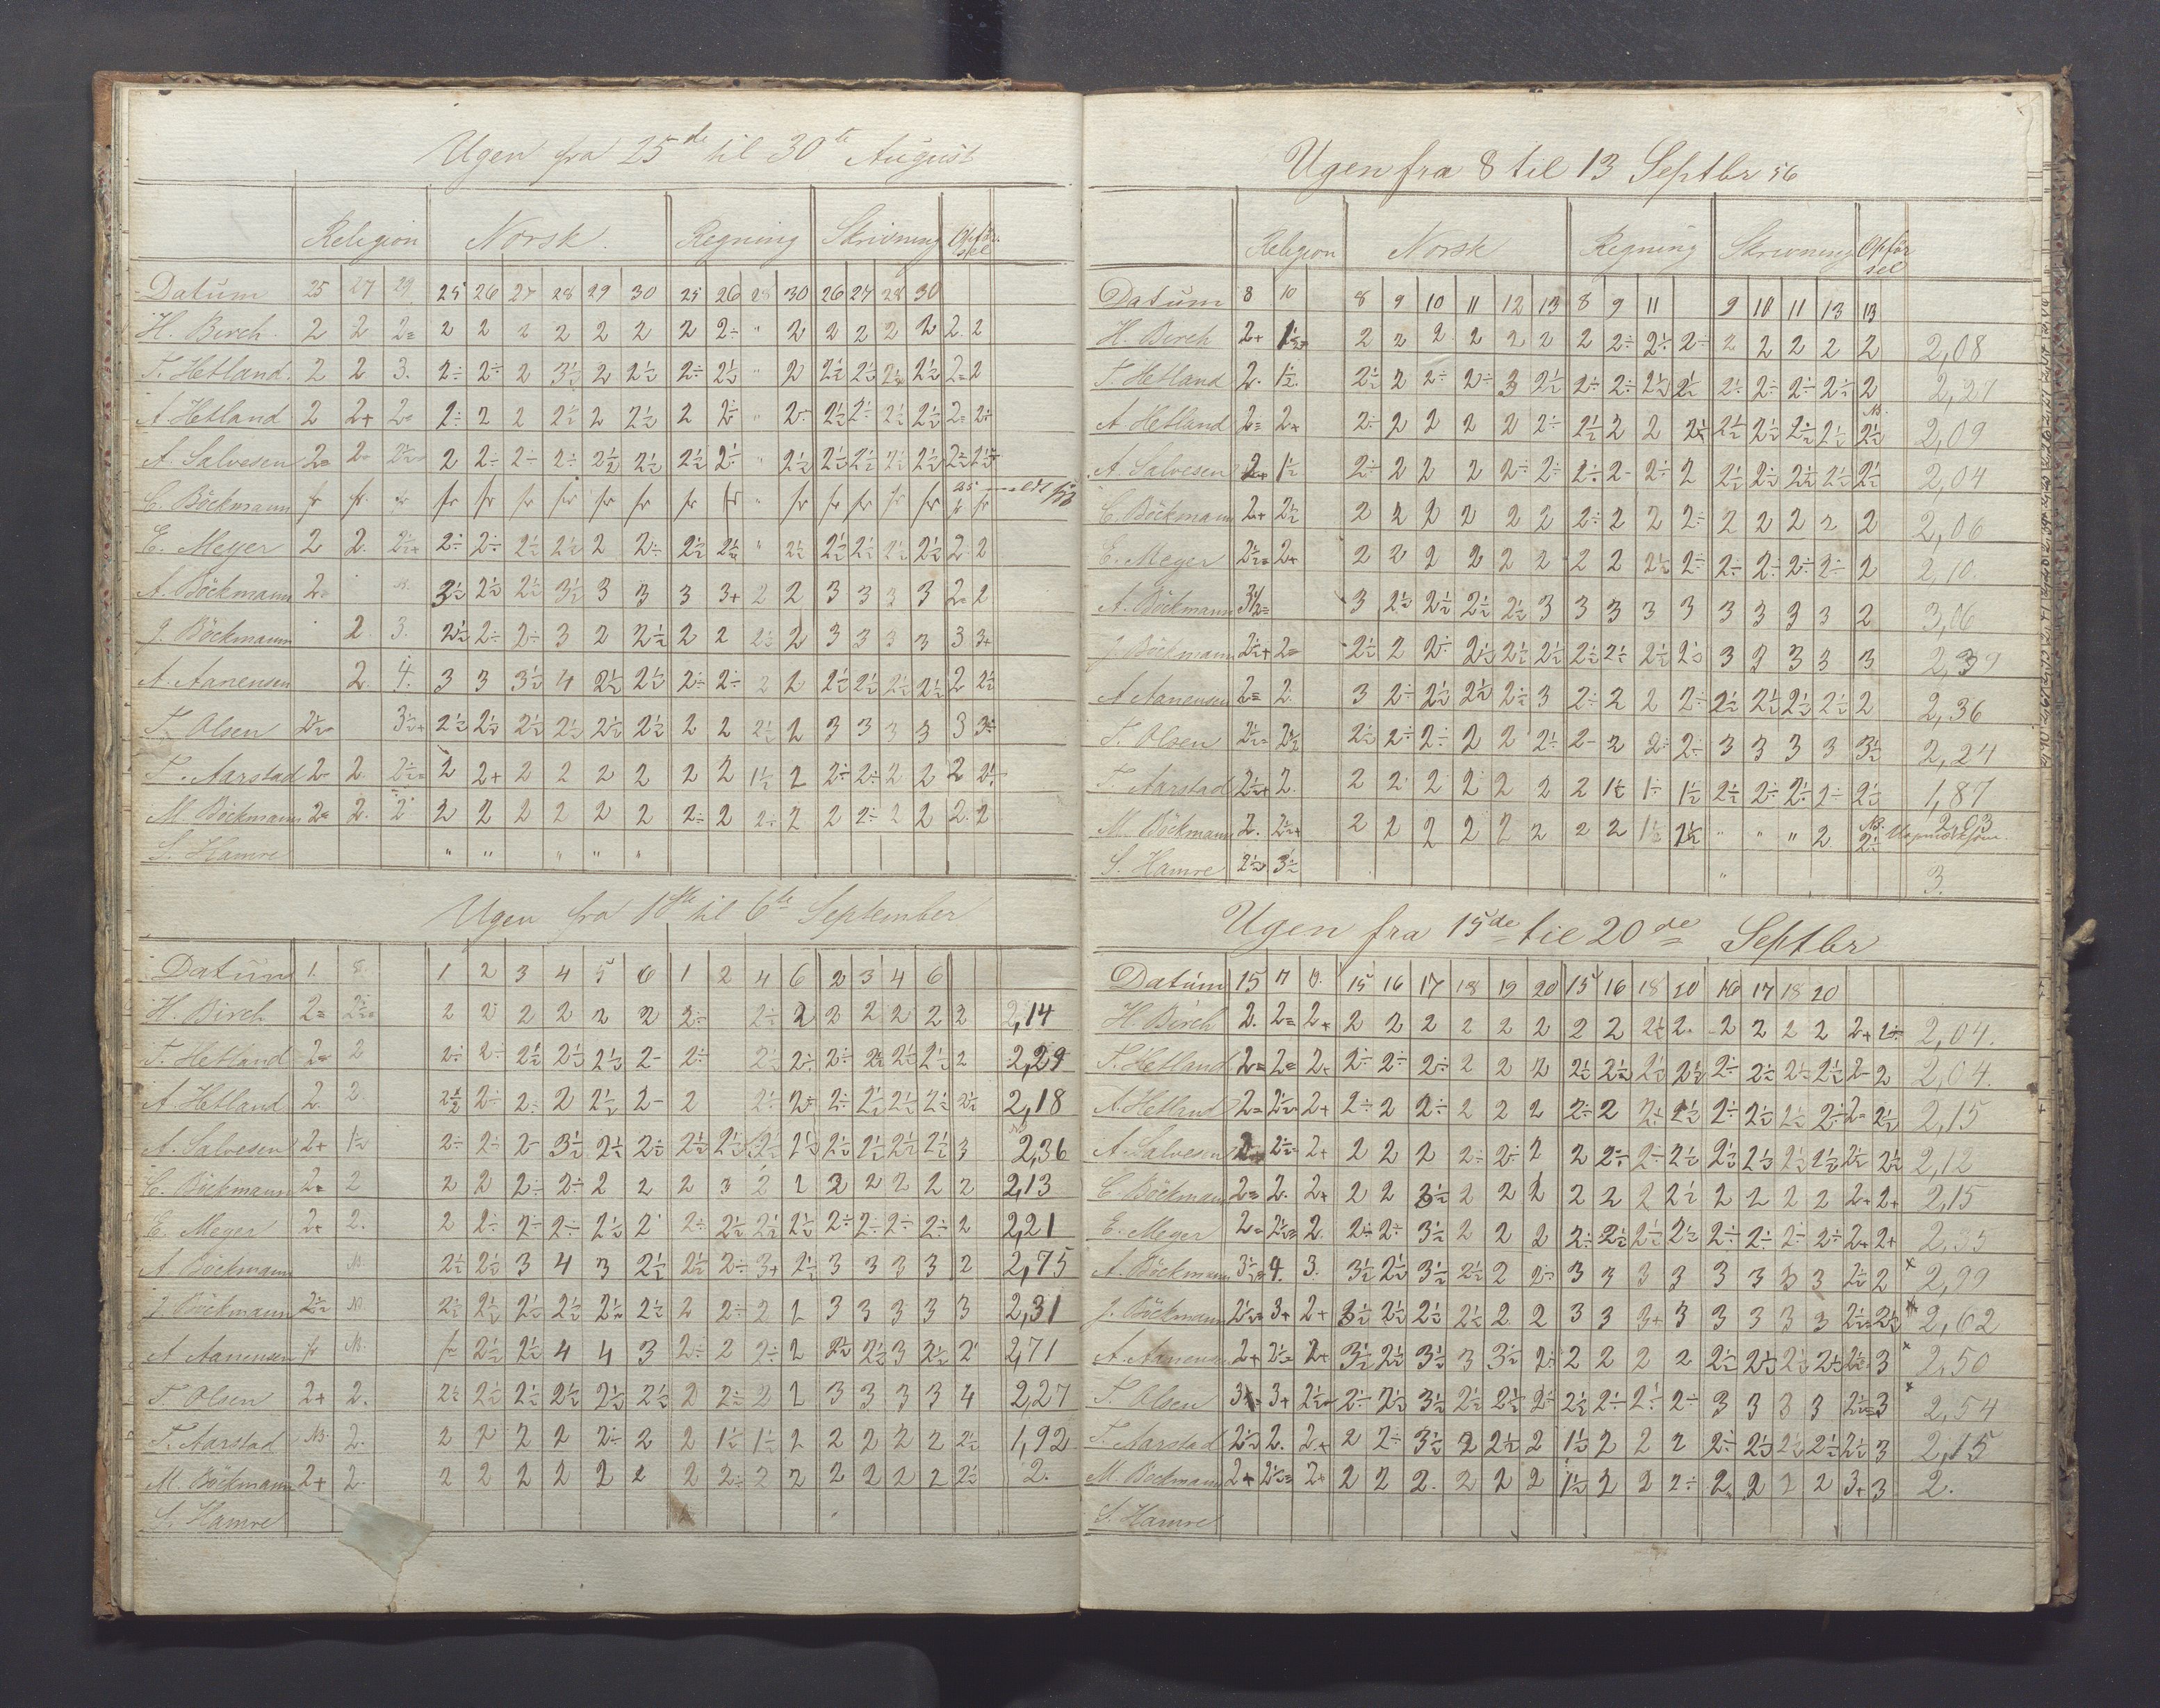 Ugen fra 25de til 30te August
Religion Norsk. Regning Skrivning Opførsel
Datum 25 27 29 25 26 27 28 29 30 25 26 28 30 26 27 28 30
H. Birch 2 2 2= 2 2 2 2 2 2 2 2÷ " 2 2 2 2 2 2. 2
T. Hetland. 2 2 3. 2÷ 2÷ 2 3½ 2 2½ 2÷ 2½ " 2 2½ 2½ 2½ 2½ 2= 2
A. Hetland 2 2+ 2= 2÷ 2 2 2½ 2 2½ 2 2÷ " 2÷ 2½ 2÷ 2½ 2½ 2= 2÷
A. Salvesen 2= 2= 2½ 2 2÷ 2÷ 2÷ 2½ 2½ 2½ 2÷ " 2½ 2½ 2½ 2½ 2½
C. Böckmann fr fr. fr fr fr fr fr fr fr fr fr " fr fr fr fr fr fr fr
E. Meyer 2 2. 2½+ 2÷ 2÷ 2½ 2½ 2 2÷ 2½ 2½ " 2½ 2½ 2½ 2½ 2½ 2. 2
A. Böckmann 2. 3½ 2½ 2½ 3½ 3 3 3 3+ 2 2 3 3 3 3 2= 2
J. Böckmann 2. 3. 2½ 2÷ 2÷ 3 2 2½ 2 2 2½ 2 3 3 3 3 3 3+
A. Aanensen 2. 4. 3 3 3½ 4 2½ 2½ 2÷ 2÷ 2 2 2½ 2½ 2½ 2½ 2 2½
T. Olsen 2½ 3½+ 2½ 2½ 2½ 2½ 2½ 2½ 2 2 2½ 2 3 3 3 3 3 3÷
T. Aarstad 2 2. 2½= 2 2+ 2 2 2 2 2 2 1½ 2 2÷ 2÷ 2 2 2 2½
M. Böckmann 2= 2. 2 2 2 2 2 2 2 2÷ 2 2÷ 2 2 2÷ 2 2 2. 2
S. Hamre " " " " "
Ugen fra 1ste til 6te September
Datum 1. 8. 1 2 3 4 5 6 1 2 4 6 2 3 4 6
H. Birch 2= 2½= 2 2 2 2 2 2 2÷ 2½ 2 2 2 2 2 2 2,14
T. Hetland 2= 2 2÷ 2÷ 2½ 2½ 2½ 2- 2÷ 2½ 2÷ 2÷ 2½ 2½ 2½ 2 2,29
A. Hetland 2. 2. 2½ 2÷ 2÷ 2 2½ 2- 2 2÷ 2÷ 2÷ 2½ 2½ 2½ 2½ 2,18
A. Salvesen 2+ 1½ 2÷ 2÷ 2- 3½ 2½ 2÷ 2½ 2½ 2½ 2½ 2½ 2½ 2½ 2½ 3 2,36
C. Böckmann 2= 2 2 2 2÷ 2÷ 2 2 2 3 2 2 2 2 2 2 2 2,13
E. Meyer 2+ 2. 2 2÷ 2÷ 2÷ 2½ 2 2÷ 2½ 2½ 2½ 2÷ 2÷ 2÷ 2÷ 2 2,21
A. Böckmann 2½ 2½ 3 4 3 2½ 2½ 2÷ 3+ 2½ 3 3 3 3 2 2,75
J. Böckmann 2½ 2½ 2½ 2½ 2½ 2½ 2½ 2 2÷ 2 2 3 3 3 3 3 2,31
A. Aanensen fr fr 2½ 2½ 4 4 3 2÷ 2 2÷ 2 2½ 2½ 3 2½ 2 2,71
T. Olsen 2+ 2. 2½ 2½ 2½ 2½ 2½ 2½ 2 2÷ 2 2 3 3 3 3 4 2,27
T. Aarstad 2. 2 2 2 2 2÷ 2 2 1½ 1½ 2 2 2 2 2 2½ 1,92
M. Böckmann 2+ 2. 2 2 2 2 2 2 2 2÷ 2 2 2 2 2 2 2½ 2.
S. Hamre
Ugen fra 8 til 13 Septbr 56
Religion Norsk Regning Skrivning Opførsel
Datum 8 10 8 9 10 11 12 13 8 9 11 9 10 11 13 13
H. Birch 2+ 1½ 2 2 2 2 2 2 2 2÷ 2½ 2÷ 2 2 2 2 2 2,08
T. Hetland 2. 1½. 2½ 2 2÷ 2÷ 3 2½ 2÷ 2÷ 2½ 2½ 2÷ 2÷ 2÷ 2÷ 2 2,27
A. Hetland 2= 2+ 2÷ 2 2 2 2 2÷ 2½ 2 2 2½ 2½ 2½ 2½ 2½ 2½ 2,09
A. Salvesen 2+ 1½ 2÷ 2 2 2 2÷ 2÷ 2÷ 2- 2÷ 2 2½ 2½ 2½ 2½ 2½ 2,04
C. Böckmann 2+ 2½ 2 2 2 2 2 2 2÷ 2 2 2÷ 2 2 2 2 2 2,06
E. Meyer 2½= 2+ 2 2 2 2 2 2 2 2 2½ 2÷ 2÷ 2÷ 2÷ 2÷ 2 2,10.
A. Böckmann 3½= 3 2½ 2½ 2½ 2½ 3 3 3 3 3 3 3 3 3 2 3,06
J. Böckmann 2½+ 2= 2½ 2 2÷ 2½ 2½ 2½ 2½ 2½ 2½ 2½ 3 3 3 3 3 2,39
A. Aanensen 2= 2. 3 2÷ 2½ 2½ 2÷ 3 2÷ 2 2 2÷ 2½ 2½ 2½ 2½ 2 2,36
T. Olsen 2½= 2½ 2½ 2÷ 2÷ 2 2 2½ 2- 2 2÷ 2÷ 3 3 3 3 3½ 2,24
T. Aarstad 2½+ 2. 2 2 2 2 2 2 2 1½ 1÷ 1½ 2½ 2÷ 2½ 2÷ 2½ 1,87
M. Böckmann 2. 2½+ 2 2 2 2 2 2 2 2 1½ 1½ " " " 2 2½ 2,03
S. Hamre 2½ 3½ " 3.
Ugen fra 15de til 20de Septbr
Datum 15 17 15 16 17 18 19 20 15 16 18 20 16 17 18 20
H. Birch 2. 2= 2+ 2 2 2 2 2 2 2 2 2½ 2. 2 2 2 2 2+ 2÷ 2,04.
T. Hetland 2= 2= 2+ 2÷ 2÷ 2÷ 2 2 2 2½ 2½ 2½ 2½ 2÷ 2½ 2½ 2½ 2- 2 2,04.
A. Hetland 2= 2½= 2+ 2÷ 2 2÷ 2 2 2 2÷ 2 2÷ 2½ 2÷ 2½ 2½ 2÷ 2= 2½ 2,15
A. Salvesen 2 2½= 2+ 2 2 2 2÷ 2÷ 2 2 2÷ 2÷ 2½ 2½ 2½ 2½ 2½ 2½ 2½ 2,12
C. Böckmann 2= 2. 2+ 2 2 3½ 2 2 2 2 2 2 2½ 2 2 2 2 2+ 2+ 2,15
E. Meyer 2= 2½= 2. 2÷ 2÷ 3½ 2 2 2 2÷ 2½ 2½ 2½ 2÷ 2÷ 2÷ 2÷ 2+ 2+
A. Böckmann 3½= 4. 3. 3½ 2½ 3½ 2½ 2 2÷ 3 3 3 3 3 3 3 3 2½ 2 x 2,99
J. Böckmann 2½= 3+ 2+ 3½ 2½ 2½ 2½ 2 2 3 3 3+ 3 3 3 3 3 2½= 2½ x 2,62
A. Aanensen 2+ 2½= 2+ 3½ 2½ 3½ 3 3½ 2÷ 2 2 2 2 2½ 2½ 2½ 2½ 2½= 3 x 2,50
T. Olsen 3+ 3+ 2½ 2÷ 2½ 3½ 2½ 2½ 2÷ 2½ 2÷ 2÷ 2÷ 3 3 3 3 2½= 3 x 2,54
T. Aarstad 2½ 2. 2+ 2 2÷ 3½ 2 2½ 2 1½ 2 2 2 2÷ 2½ 2½ 2½ 2½ 3 2,15
M. Böckmann 2+ 2½= 2+ 2 2 2. 2 2 2 1½ 2 2 2÷ 2 2 2 2 3+ 3 2.
S. Hamre